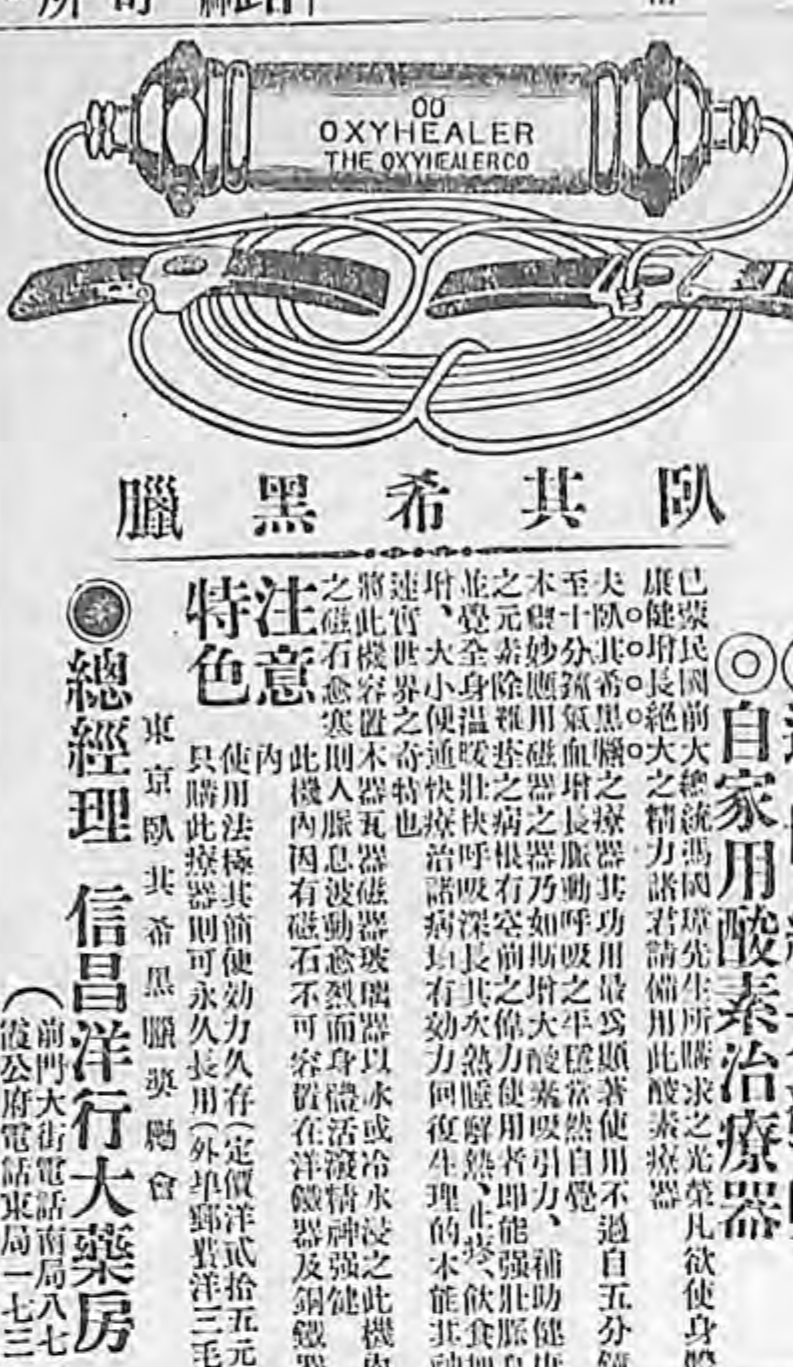 OO
OXYHEALER
THE OXYHEALER CO
臥其希黑臘
◎自家用酸素治療器
已蒙民國前大總統馮國璋先生所購求之光榮凡欲使身體
康健增長絕大之精力諸君請備用此酸素療器
夫臥其希黑臘之療器其功用最為顯著使用不過自五分鐘
至十分鐘氣血增長脈動呼吸之平穩當然自覺
妙應用磁器之器乃如斯增大酸素吸引力、補助健康
之元素除雜痊之病根有空前之偉力使用者即能強壯脈
並覺全身温暖壯快呼吸深長其次熱睡解熱、止痰、飲食
增、大小便通快療治諸病均有効力回復生理的本能其
速實世界之奇特也
將此機容置木器瓦器磁器玻璃器以冰或冷水浸之此機內
之磁石愈寒則人脈息波動愈烈而身體活潑精神强健
注意
此機內因有磁石不可容置在洋鐵器及銅鐵器
內
特色
使用法極其簡便効力久存(定價洋貳拾五元
只購此療器則可永久長用(外埠郵費洋三毛
東京臥其希黑臘獎勵會
總經理 信昌洋行大藥房
(前門大街電話南局八七
霞公府電話東局一七三